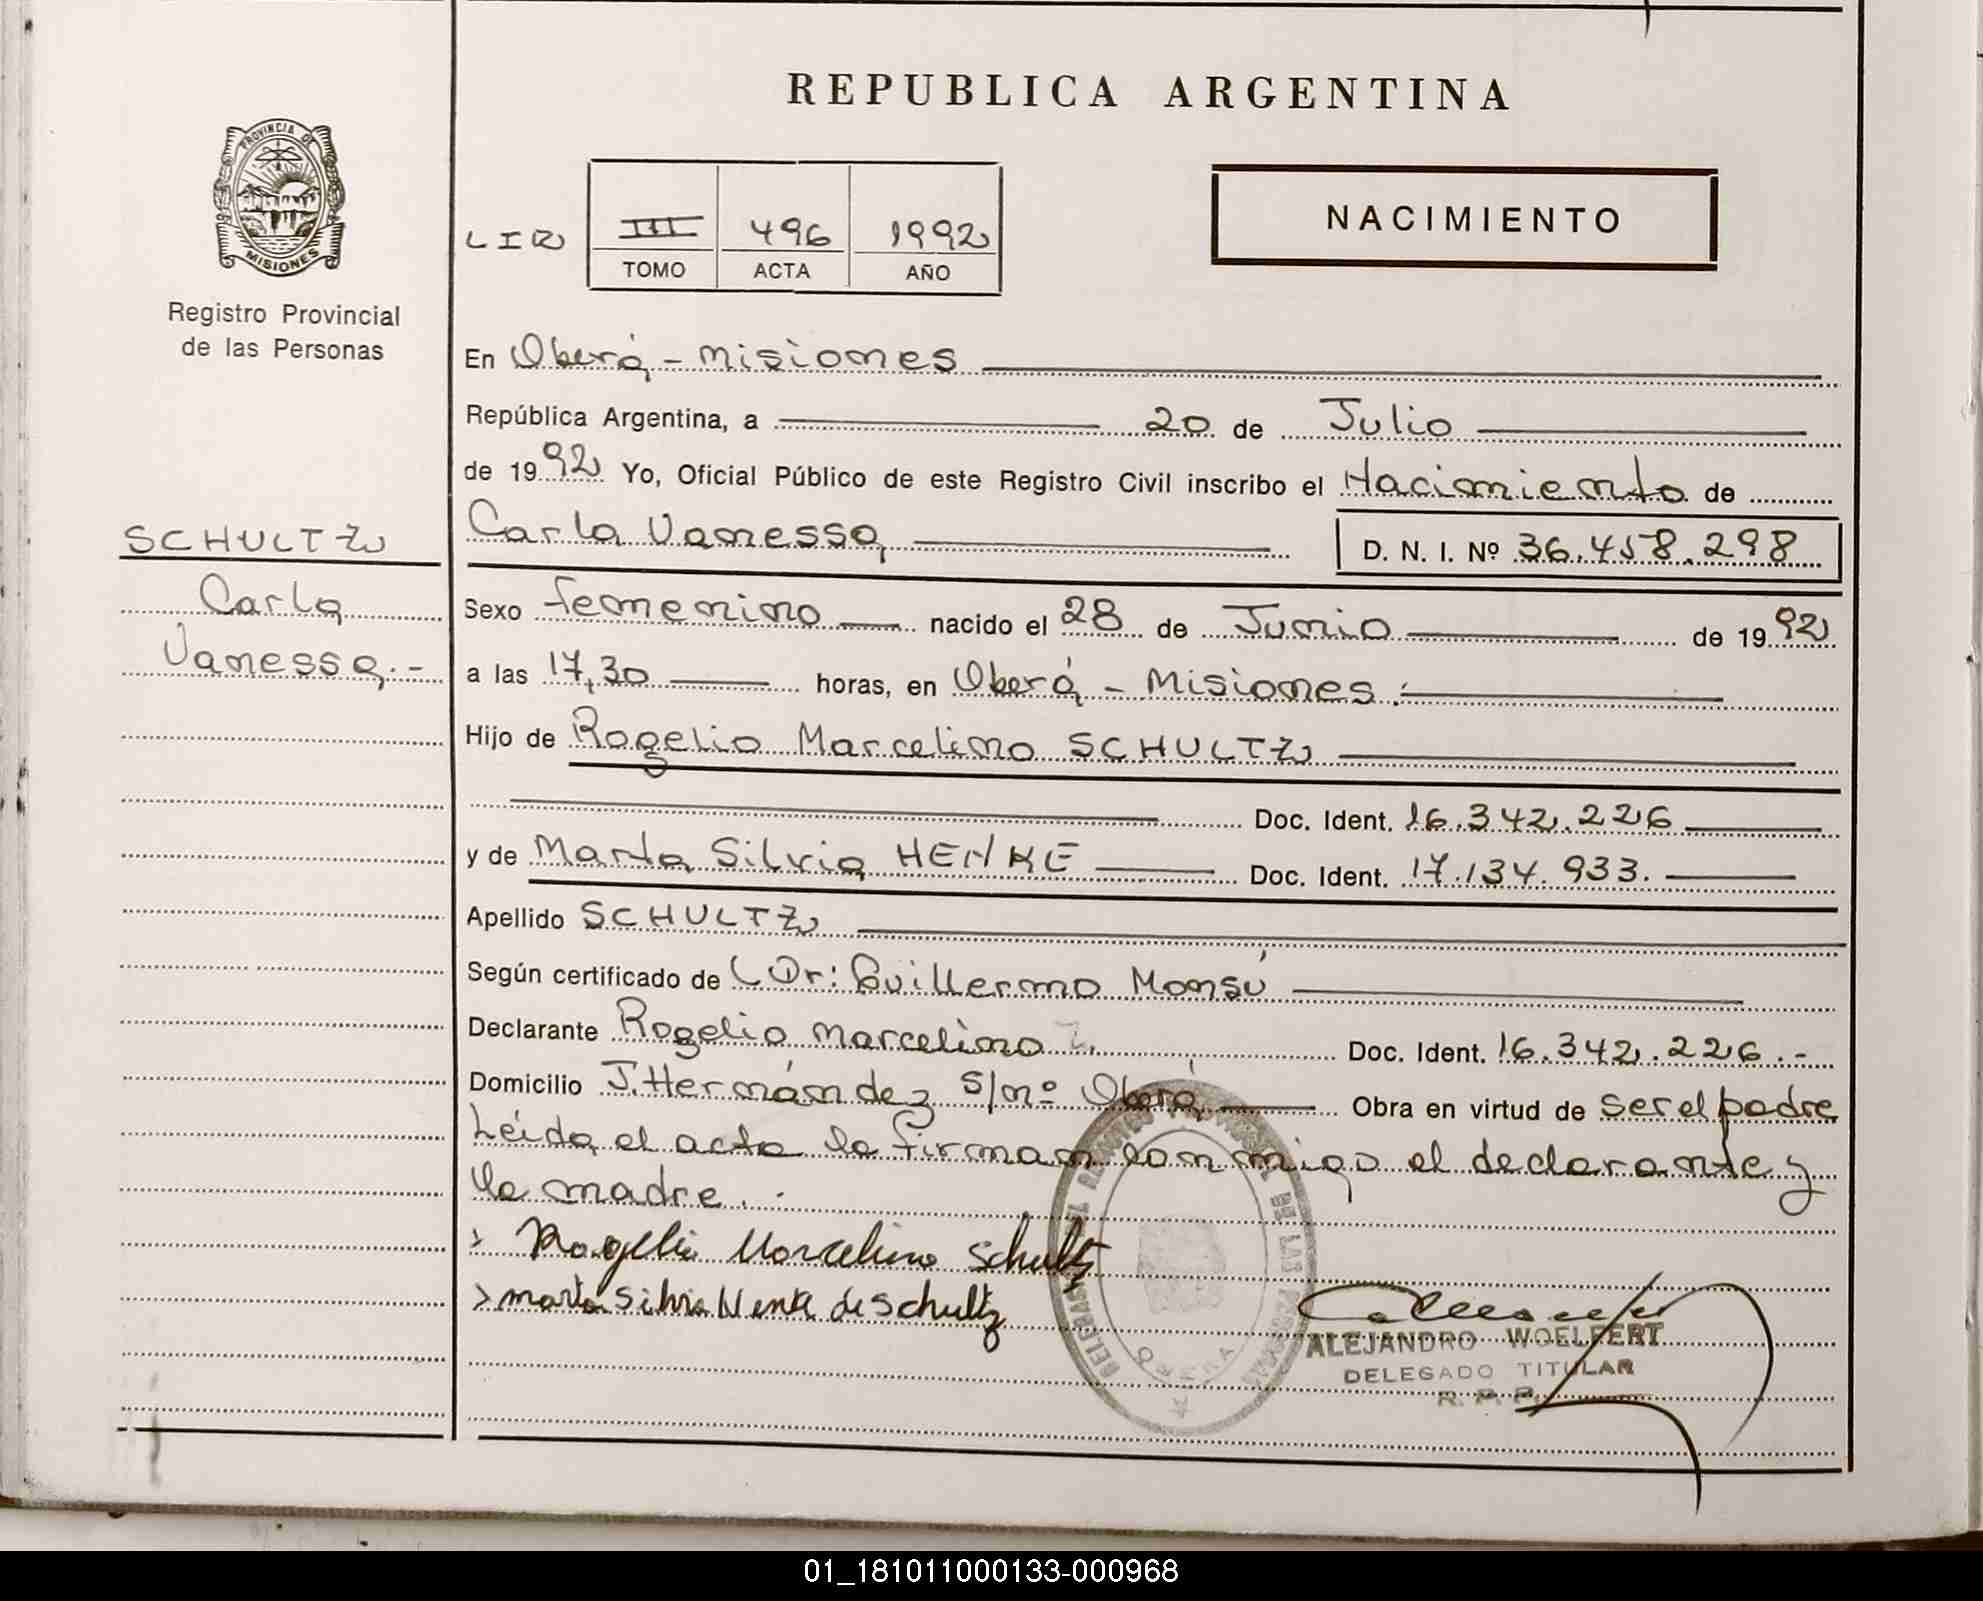 REPUBLICA ARGENTINA
PROVINCIA DE
MISIONES
Registro Provincial
de las Personas
III 496 1992
TOMO ACTA AÑO
NACIMIENTO
En Oberá - Misiones
República Argentina, a 20 de Julio
de 1992 Yo, Oficial Público de este Registro Civil inscribo el Nacimiento de
SCHULTZ
Carla
Vanessa.-
Carla Vanessa D. N. I. Nº 36.458.298
Sexo femenino nacido el 28 de Junio de 1992
a las 17,30 horas, en Oberá - Misiones.
Hijo de Rogelio Marcelino SCHULTZ
Doc. Ident. 16.342.226
y de Marta Silvia HENKE Doc. Ident. 17.134.933.
Apellido SCHULTZ
Según certificado de Dr: Guillermo Monsú
Declarante Rogelio Marcelino Doc. Ident. 16.342.226.-
Domicilio J. Hernández s/nº Oberá Obra en virtud de ser el padre
Leída el acta la firman conmigo el declarante y
la madre.-
Rogelio Marcelino Schultz
Marta Silvia Henke de Schultz
ALEJANDRO WOELFERT
DELEGADO TITULAR
R. P. P.
DE LAS PERSONAS
OBERA
01_181011000133-000968